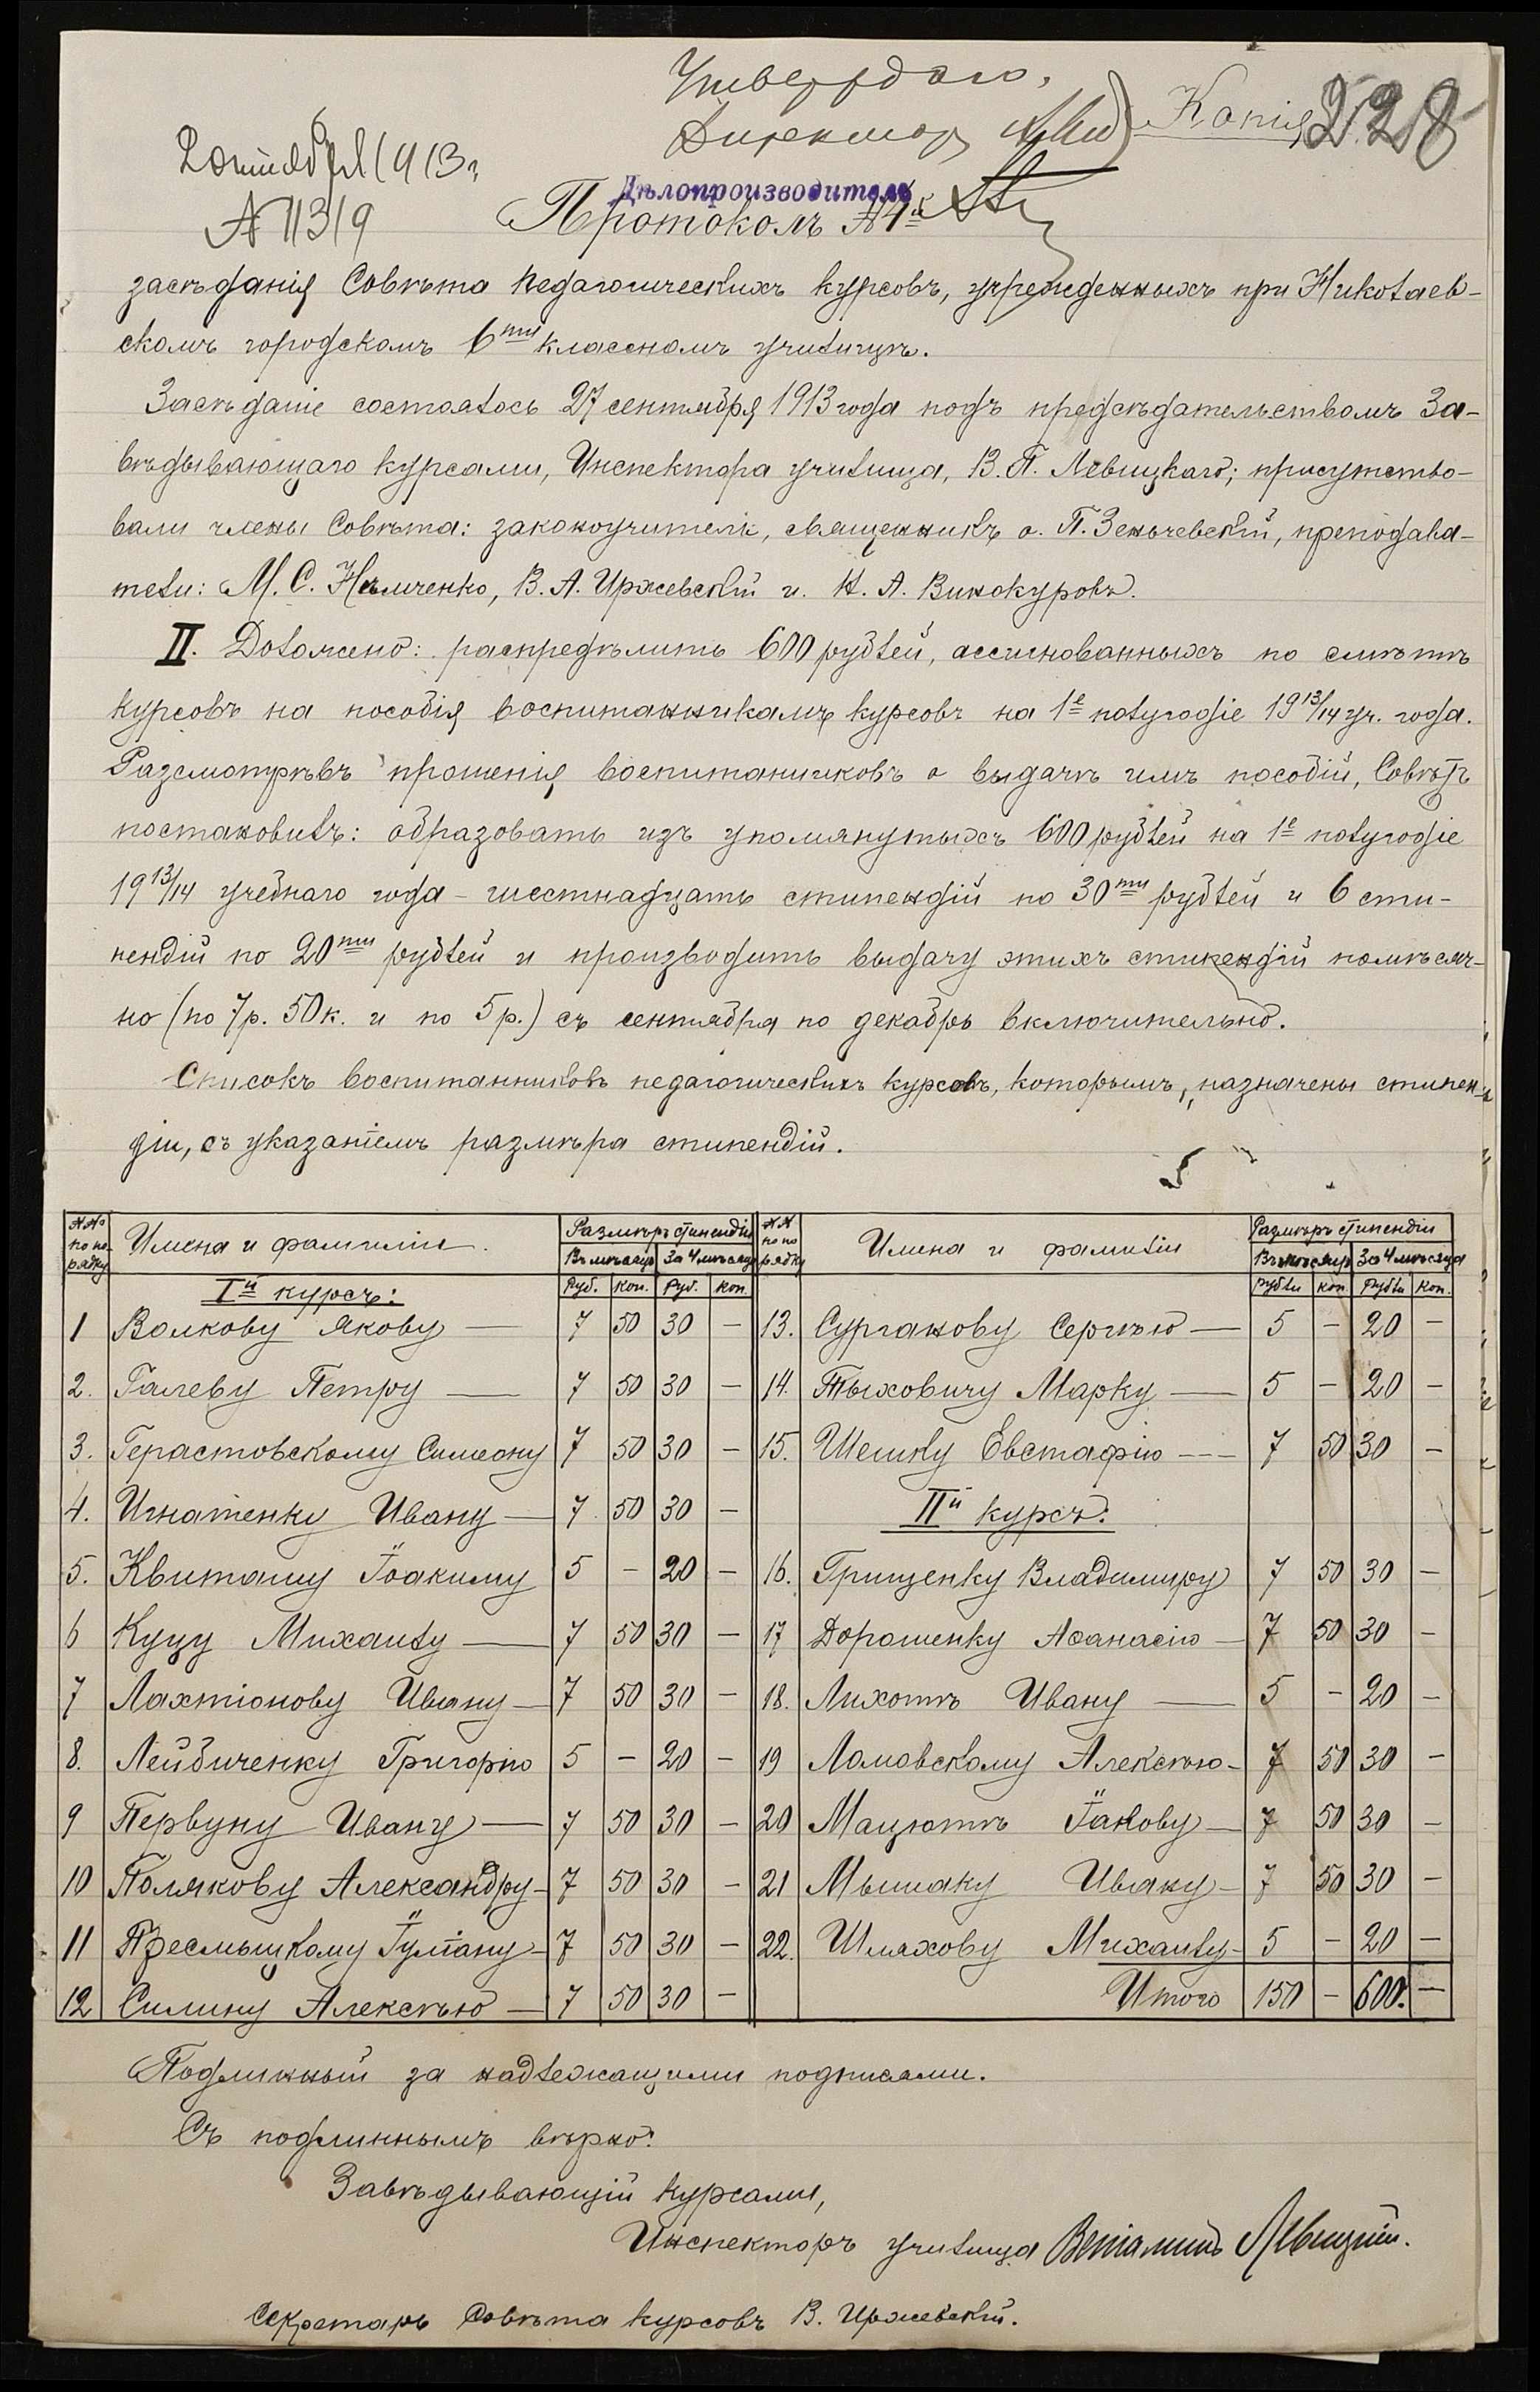 Утверждаю,
Директоръ
Копія
228
2 октября 1913 г.
№ 1319
Дѣлопроизводитель
Протоколъ № 4й
засѣданія Совѣта педагогическихъ курсовъ, учрежденныхъ при Николаев-
скомъ городскомъ 6ти классномъ училищѣ.
Засѣданіе состоялось 27 сентября 1913 года подъ предсѣдательствомъ За-
вѣдывающаго курсами, Инспектора училища, В. П. Левицкаго; присутство-
вали члены Совѣта: законоучитель, священникъ о. П. Зеньчевскій, преподава-
тели: М. С. Нѣмченко, В. А. Иржевскій и Н. А. Винокуровъ.
II. Доложено: распредѣлить 600 рублей, ассигнованныхъ по смѣтѣ
курсовъ на пособія воспитанникамъ курсовъ на 1е полугодіе 1913/14 уч. года.
Разсмотрѣвъ прошенія воспитанниковъ о выдачѣ имъ пособій, Совѣтъ
постановилъ: образовать изъ упомянутыхъ 600 рублей на 1е полугодіе
1913/14 учебнаго года – шестнадцать стипендій по 30ти рублей и 6 сти-
пендій по 20ти рублей и производить выдачу этихъ стипендій помѣсяч-
но (по 7 р. 50 к. и по 5 р.) съ сентября по декабрь включительно.
Списокъ воспитанниковъ педагогическихъ курсовъ, которымъ, назначены стипен-
діи, съ указаніемъ размѣра стипендій.
№№ по порядку Имена и фамиліи. Размѣръ стипендіи №№ по порядку Имена и фамиліи Размѣръ стипендіи
Въ мѣсяцъ За 4 мѣсяца Въ мѣсяцъ За 4 мѣсяца
Iй курсъ: Руб. Коп. Руб. Коп. Рубли Коп. Рубли Коп.
1 Волкову Якову — 7 50 30 — 13. Сурганову Сергѣю — 5 — 20 —
2. Галеву Петру — 7 50 30 — 14. Тыховичу Марку — 5 — 20 —
3. Герастовскому Симеону 7 50 30 — 15. Шешку Евстафію — 7 50 30 —
4. Игнатенку Ивану — 7 50 30 — IIй курсъ:
5. Квиташу Іоакиму 5 — 20 — 16. Грищенку Владимиру 7 50 30 —
6 Куцу Михаилу — 7 50 30 — 17 Дорошенку Аѳанасію — 7 50 30 —
7 Лахтіонову Ивану — 7 50 30 — 18. Лихотѣ Ивану — 5 — 20 —
8. Лейбиченку Григорію 5 — 20 — 19 Ломовскому Алексѣю — 7 50 30 —
9 Первуну Ивану — 7 50 30 — 20 Мацютѣ Іакову — 7 50 30 —
10 Полякову Александру — 7 50 30 — 21 Мышаку Ивану — 7 50 30 —
11 Пресмыцкому Іуліану — 7 50 30 — 22. Шляхову Михаилу — 5 — 20 —
12 Силину Алексѣю — 7 50 30 — Итого 150 — 600. —
Подлинный за надлежащими подписями.
Съ подлиннымъ вѣрно:
Завѣдывающій курсами,
Инспекторъ училища Веніаминъ Левицкій.
Секретарь Совѣта курсовъ В. Иржевскій.